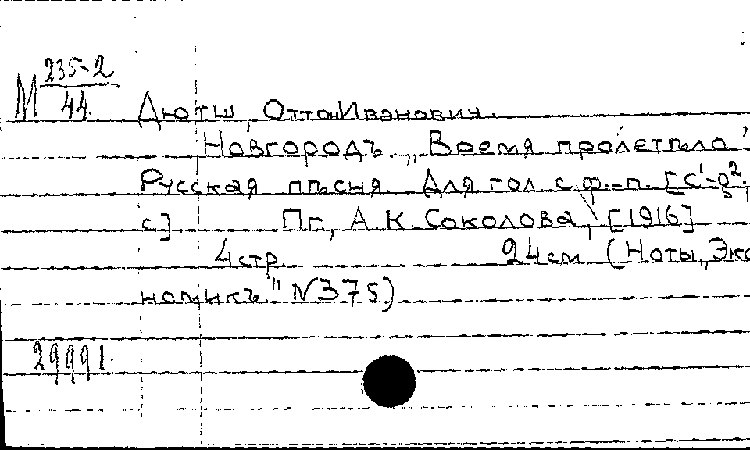 М 235-2
44
Дютш, Отто Иванович.
Новгородъ. „Время пролетѣло"
Русская пѣсня. Для гол. с ф.-п. [c¹-g²,
c]. Пг., А. К. Соколова, [1916]
4 стр. 24 см. (Ноты „Эко
номикъ" N 375)
29991